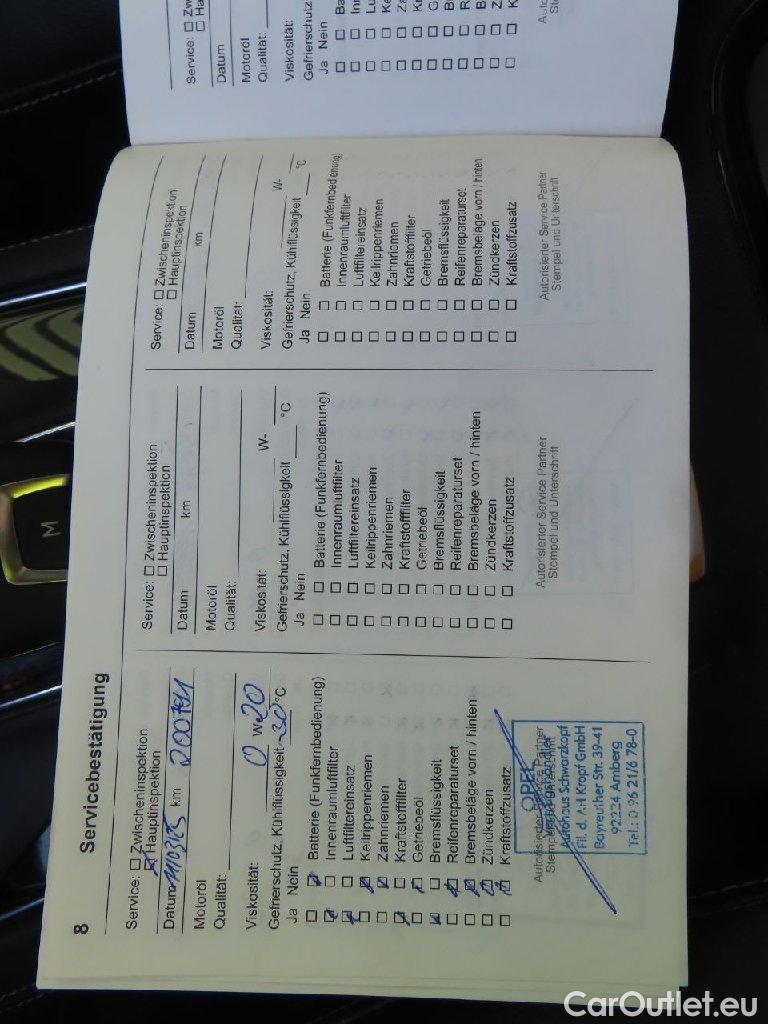 8
Servicebestätigung
Service: Zwischeninspektion
Hauptinspektion
Datum km
Motoröl
Qualität:
Viskosität: 0 W- 20
Gefrierschutz, Kühlflüssigkeit -30 °C
Ja Nein
Batterie (Funkfernbedienung)
Innenraumluftfilter
Luftfiltereinsatz
Keilrippenriemen
Zahnriemen
Kraftstofffilter
Getriebeöl
Bremsflüssigkeit
Reifenreparaturset
Bremsbeläge vorn / hinten
Zündkerzen
Kraftstoffzusatz
Autorisierter Service Partner
OPEL
Autohaus Schwarzkopf
Fil. d. A+I Kropf GmbH
Bayreuther Str. 39-41
92224 Amberg
Tel.: 0 96 21/6 78-0
Service: Zwischeninspektion
Hauptinspektion
Datum km
Motoröl
Qualität:
Viskosität: W-
Gefrierschutz, Kühlflüssigkeit °C
Ja Nein
Batterie (Funkfernbedienung)
Innenraumluftfilter
Luftfiltereinsatz
Keilrippenriemen
Zahnriemen
Kraftstofffilter
Getriebeöl
Bremsflüssigkeit
Reifenreparaturset
Bremsbeläge vorn / hinten
Zündkerzen
Kraftstoffzusatz
Autorisierter Service Partner
Stempel und Unterschrift
Service: Zwischeninspektion
Hauptinspektion
Datum km
Motoröl
Qualität:
Viskosität: W-
Gefrierschutz, Kühlflüssigkeit °C
Ja Nein
Batterie (Funkfernbedienung)
Innenraumluftfilter
Luftfiltereinsatz
Keilrippenriemen
Zahnriemen
Kraftstofffilter
Getriebeöl
Bremsflüssigkeit
Reifenreparaturset
Bremsbeläge vorn / hinten
Zündkerzen
Kraftstoffzusatz
Autorisierter Service Partner
Stempel und Unterschrift
Service:
Datum
Motoröl
Qualität:
Viskosität:
Gefrierschutz
Ja Nein
M
CarOutlet.eu